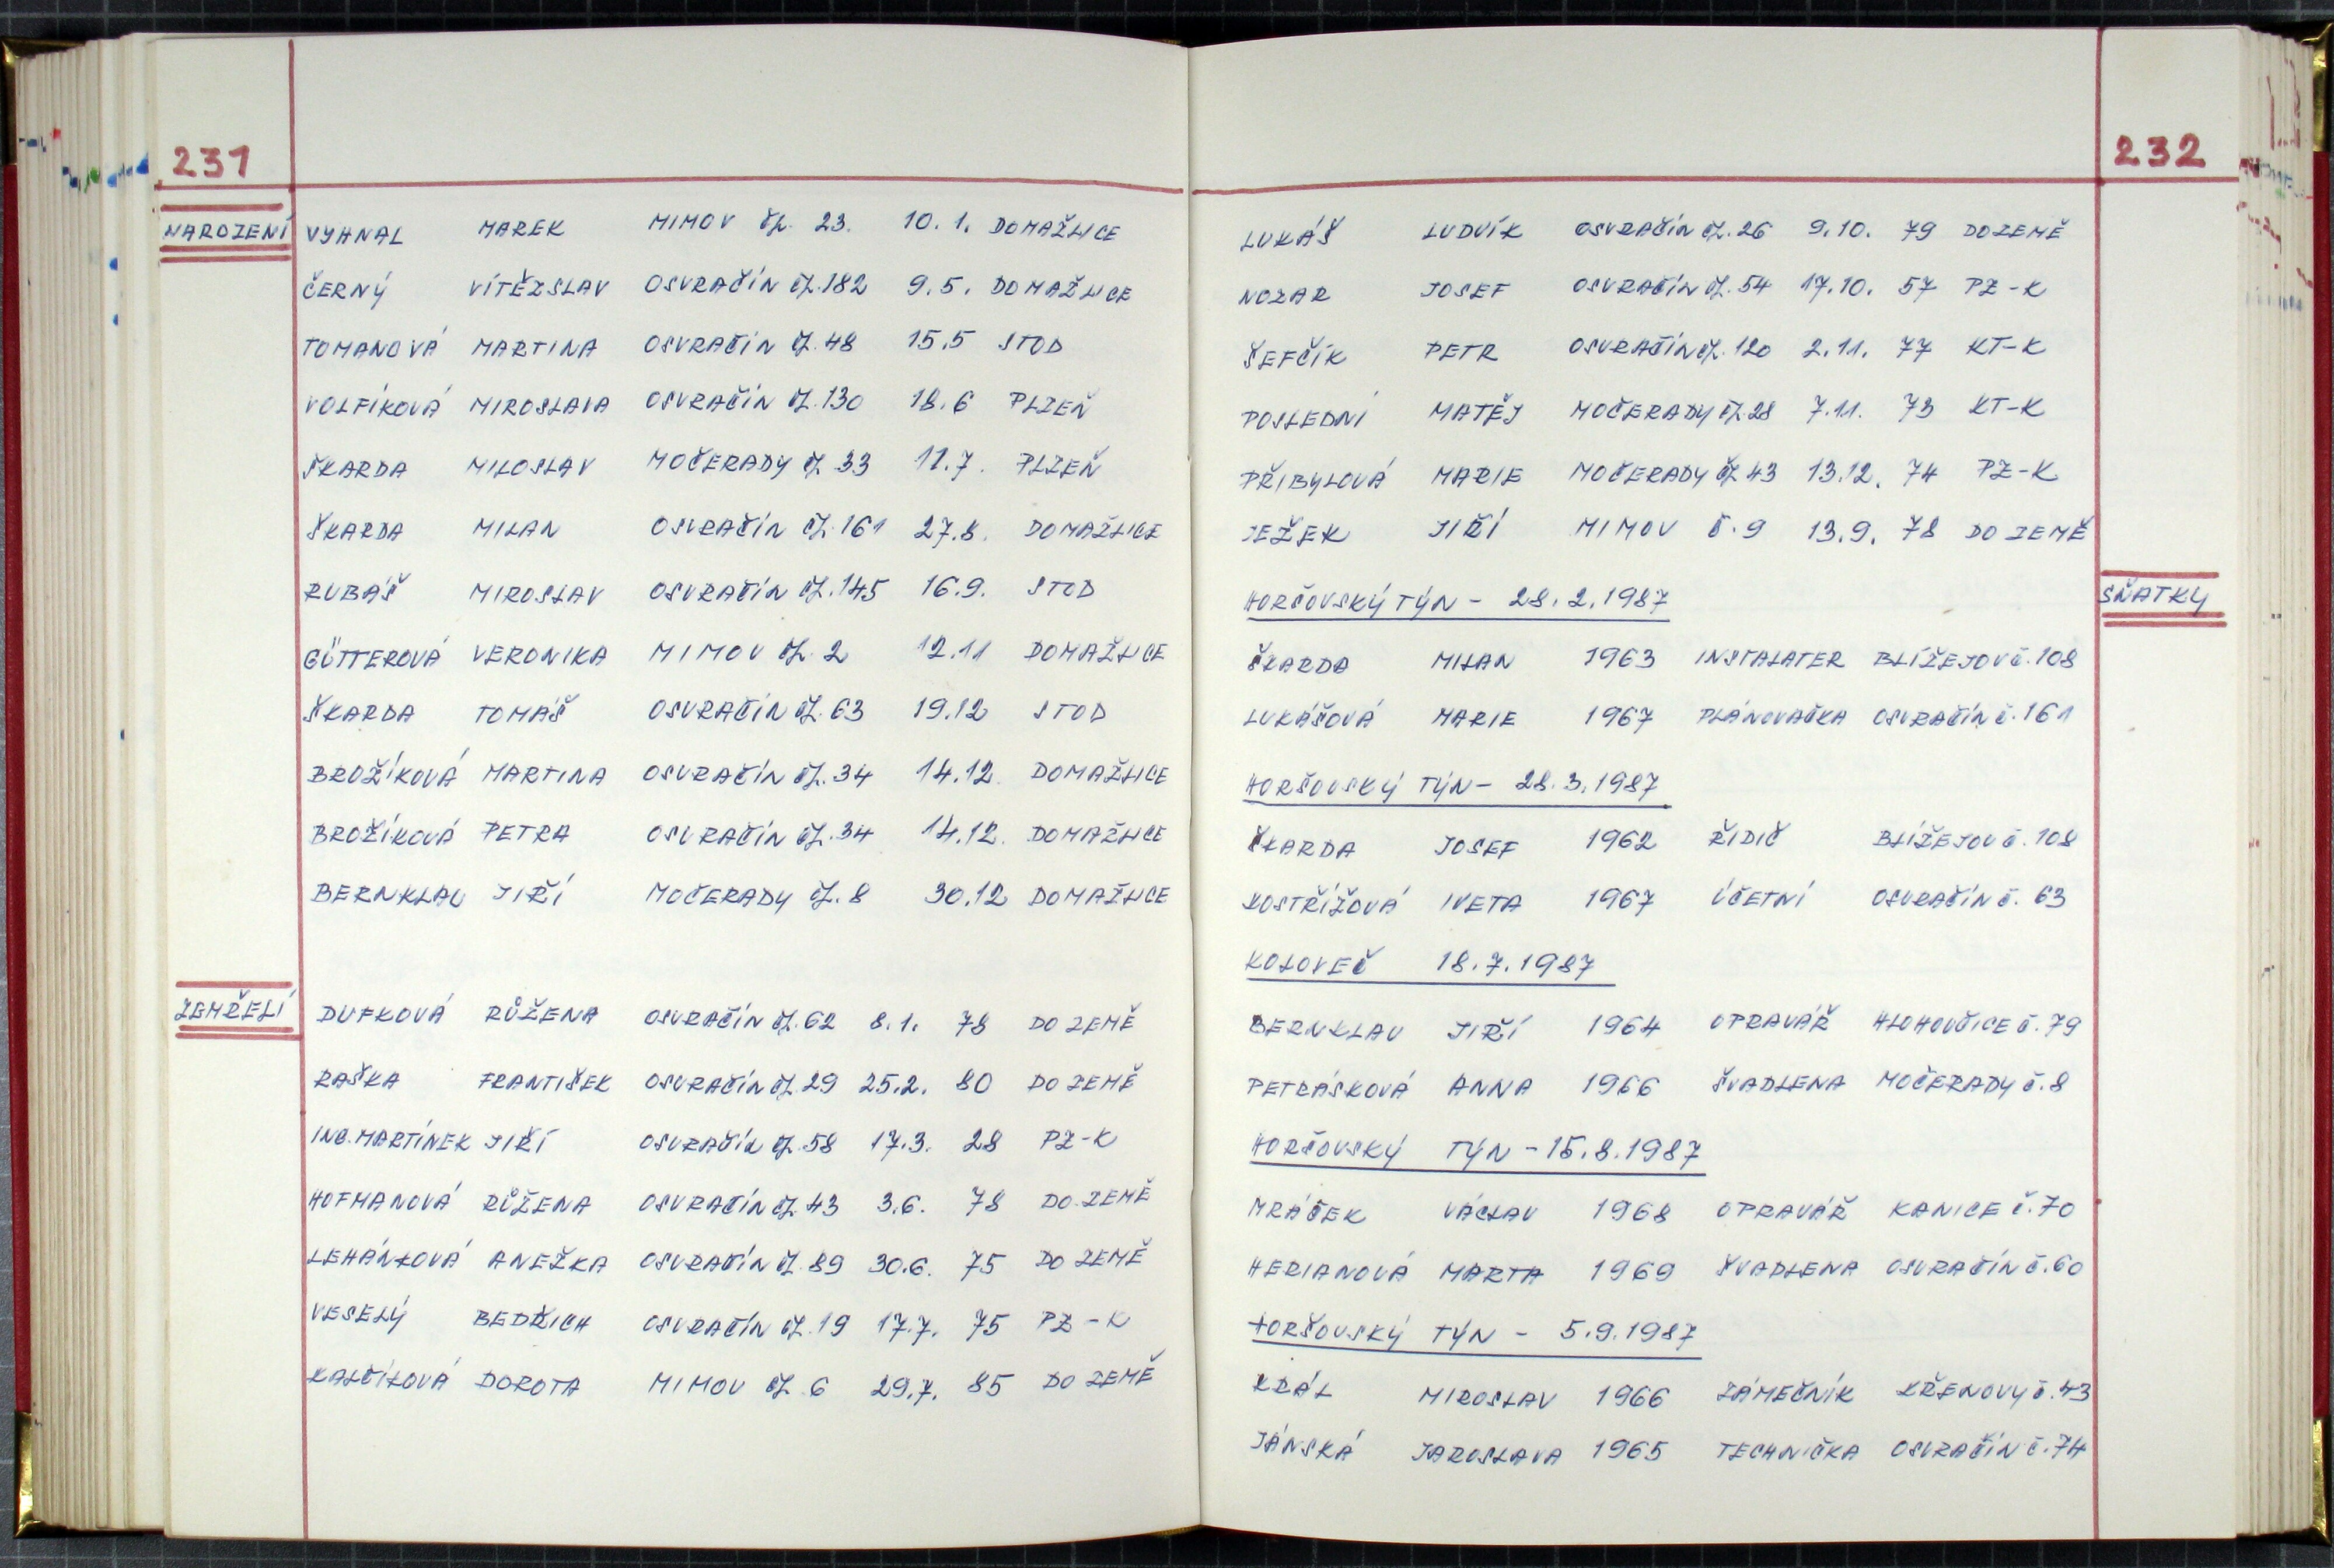 231
NAROZENÍ VYHNAL MAREK MIMOV ČP. 23. 10. 1. DOMAŽLICE
ČERNÝ VÍTĚZSLAV OSVRAČÍN ČP. 182 9. 5. DOMAŽLICE
TOMANOVÁ MARTINA OSVRAČÍN ČP. 48 15. 5 STOD
VOLFÍKOVÁ MIROSLAVA OSVRAČÍN ČP. 130 18. 6 PLZEŇ
ŠKARDA MILOSLAV MOČERADY ČP 33 11. 7. PLZEŇ
ŠKARDA MILAN OSVRAČÍN ČP. 161 27. 8. DOMAŽLICE
RUBÁŠ MIROSLAV OSVRAČÍN ČP. 145 16. 9. STOD
GÜTTEROVÁ VERONIKA MIMOV ČP. 2 12. 11 DOMAŽLICE
ŠKARDA TOMÁŠ OSVRAČÍN ČP. 63 19. 12 STOD
BROŽÍKOVÁ MARTINA OSVRAČÍN ČP. 34 14. 12. DOMAŽLICE
BROŽÍKOVÁ PETRA OSVRAČÍN ČP. 34 14. 12. DOMAŽLICE
BERNKLAU JIŘÍ MOČERADY ČP. 8 30. 12 DOMAŽLICE
ZEMŘELÍ DUFKOVÁ RŮŽENA OSVRAČÍN ČP. 62 8. 1. 78 DO ZEMĚ
RAŠKA FRANTIŠEK OSVRAČÍN ČP. 29 25. 2. 80 DO ZEMĚ
ING. MARTÍNEK JIŘÍ OSVRAČÍN ČP. 58 17. 3. 28 PZ-K
HOFMANOVÁ RŮŽENA OSVRAČÍN ČP. 43 3. 6. 78 DO ZEMĚ
LEHÁNKOVÁ ANEŽKA OSVRAČÍN ČP. 89 30. 6. 75 DO ZEMĚ
VESELÝ BEDŘICH OSVRAČÍN ČP. 19 17. 7. 75 PZ-K
KALČÍKOVÁ DOROTA MIMOV ČP. 6 29. 7. 85 DO ZEMĚ
232
LUKÁŠ LUDVÍK OSVRAČÍN ČP. 26 9. 10. 79 DO ZEMĚ
NOZAR JOSEF OSVRAČÍN ČP. 54 17. 10. 57 PZ-K
ŠEFČÍK PETR OSVRAČÍN ČP. 120 2. 11. 77 KT-K
POSLEDNÍ MATĚJ MOČERADY ČP. 28 7. 11. 73 KT-K
PŘIBYLOVÁ MARIE MOČERADY ČP 43 13. 12. 74 PZ-K
JEŽEK JIŘÍ MIMOV Č. 9 13. 9. 78 DO ZEMĚ
HORŠOVSKÝ TÝN - 28. 2. 1987 SŇATKY
ŠKARDA MILAN 1963 INSTALATER BLÍŽEJOV Č. 108
LUKÁŠOVÁ MARIE 1967 PLÁNOVAČKA OSVRAČÍN Č. 161
HORŠOVSKÝ TÝN - 28. 3. 1987
ŠKARDA JOSEF 1962 ŘIDIČ BLÍŽEJOV Č. 108
KOSTŘÍŽOVÁ IVETA 1967 ÚČETNÍ OSVRAČÍN Č. 63
KOLOVEČ 18. 7. 1987
BERNKLAU JIŘÍ 1964 OPRAVÁŘ HLOHOVČICE Č. 79
PETRÁSKOVÁ ANNA 1966 ŠVADLENA MOČERADY Č. 8
HORŠOVSKÝ TÝN - 15. 8. 1987
MRÁČEK VÁCLAV 1968 OPRAVÁŘ KANICE Č. 70
HERIANOVÁ MARTA 1969 ŠVADLENA OSVRAČÍN Č. 60
HORŠOVSKÝ TÝN - 5. 9. 1987
KRÁL MIROSLAV 1966 ZÁMEČNÍK KŘENOVY Č. 43
JÁNSKÁ JAROSLAVA 1965 TECHNIČKA OSVRAČÍN Č. 74